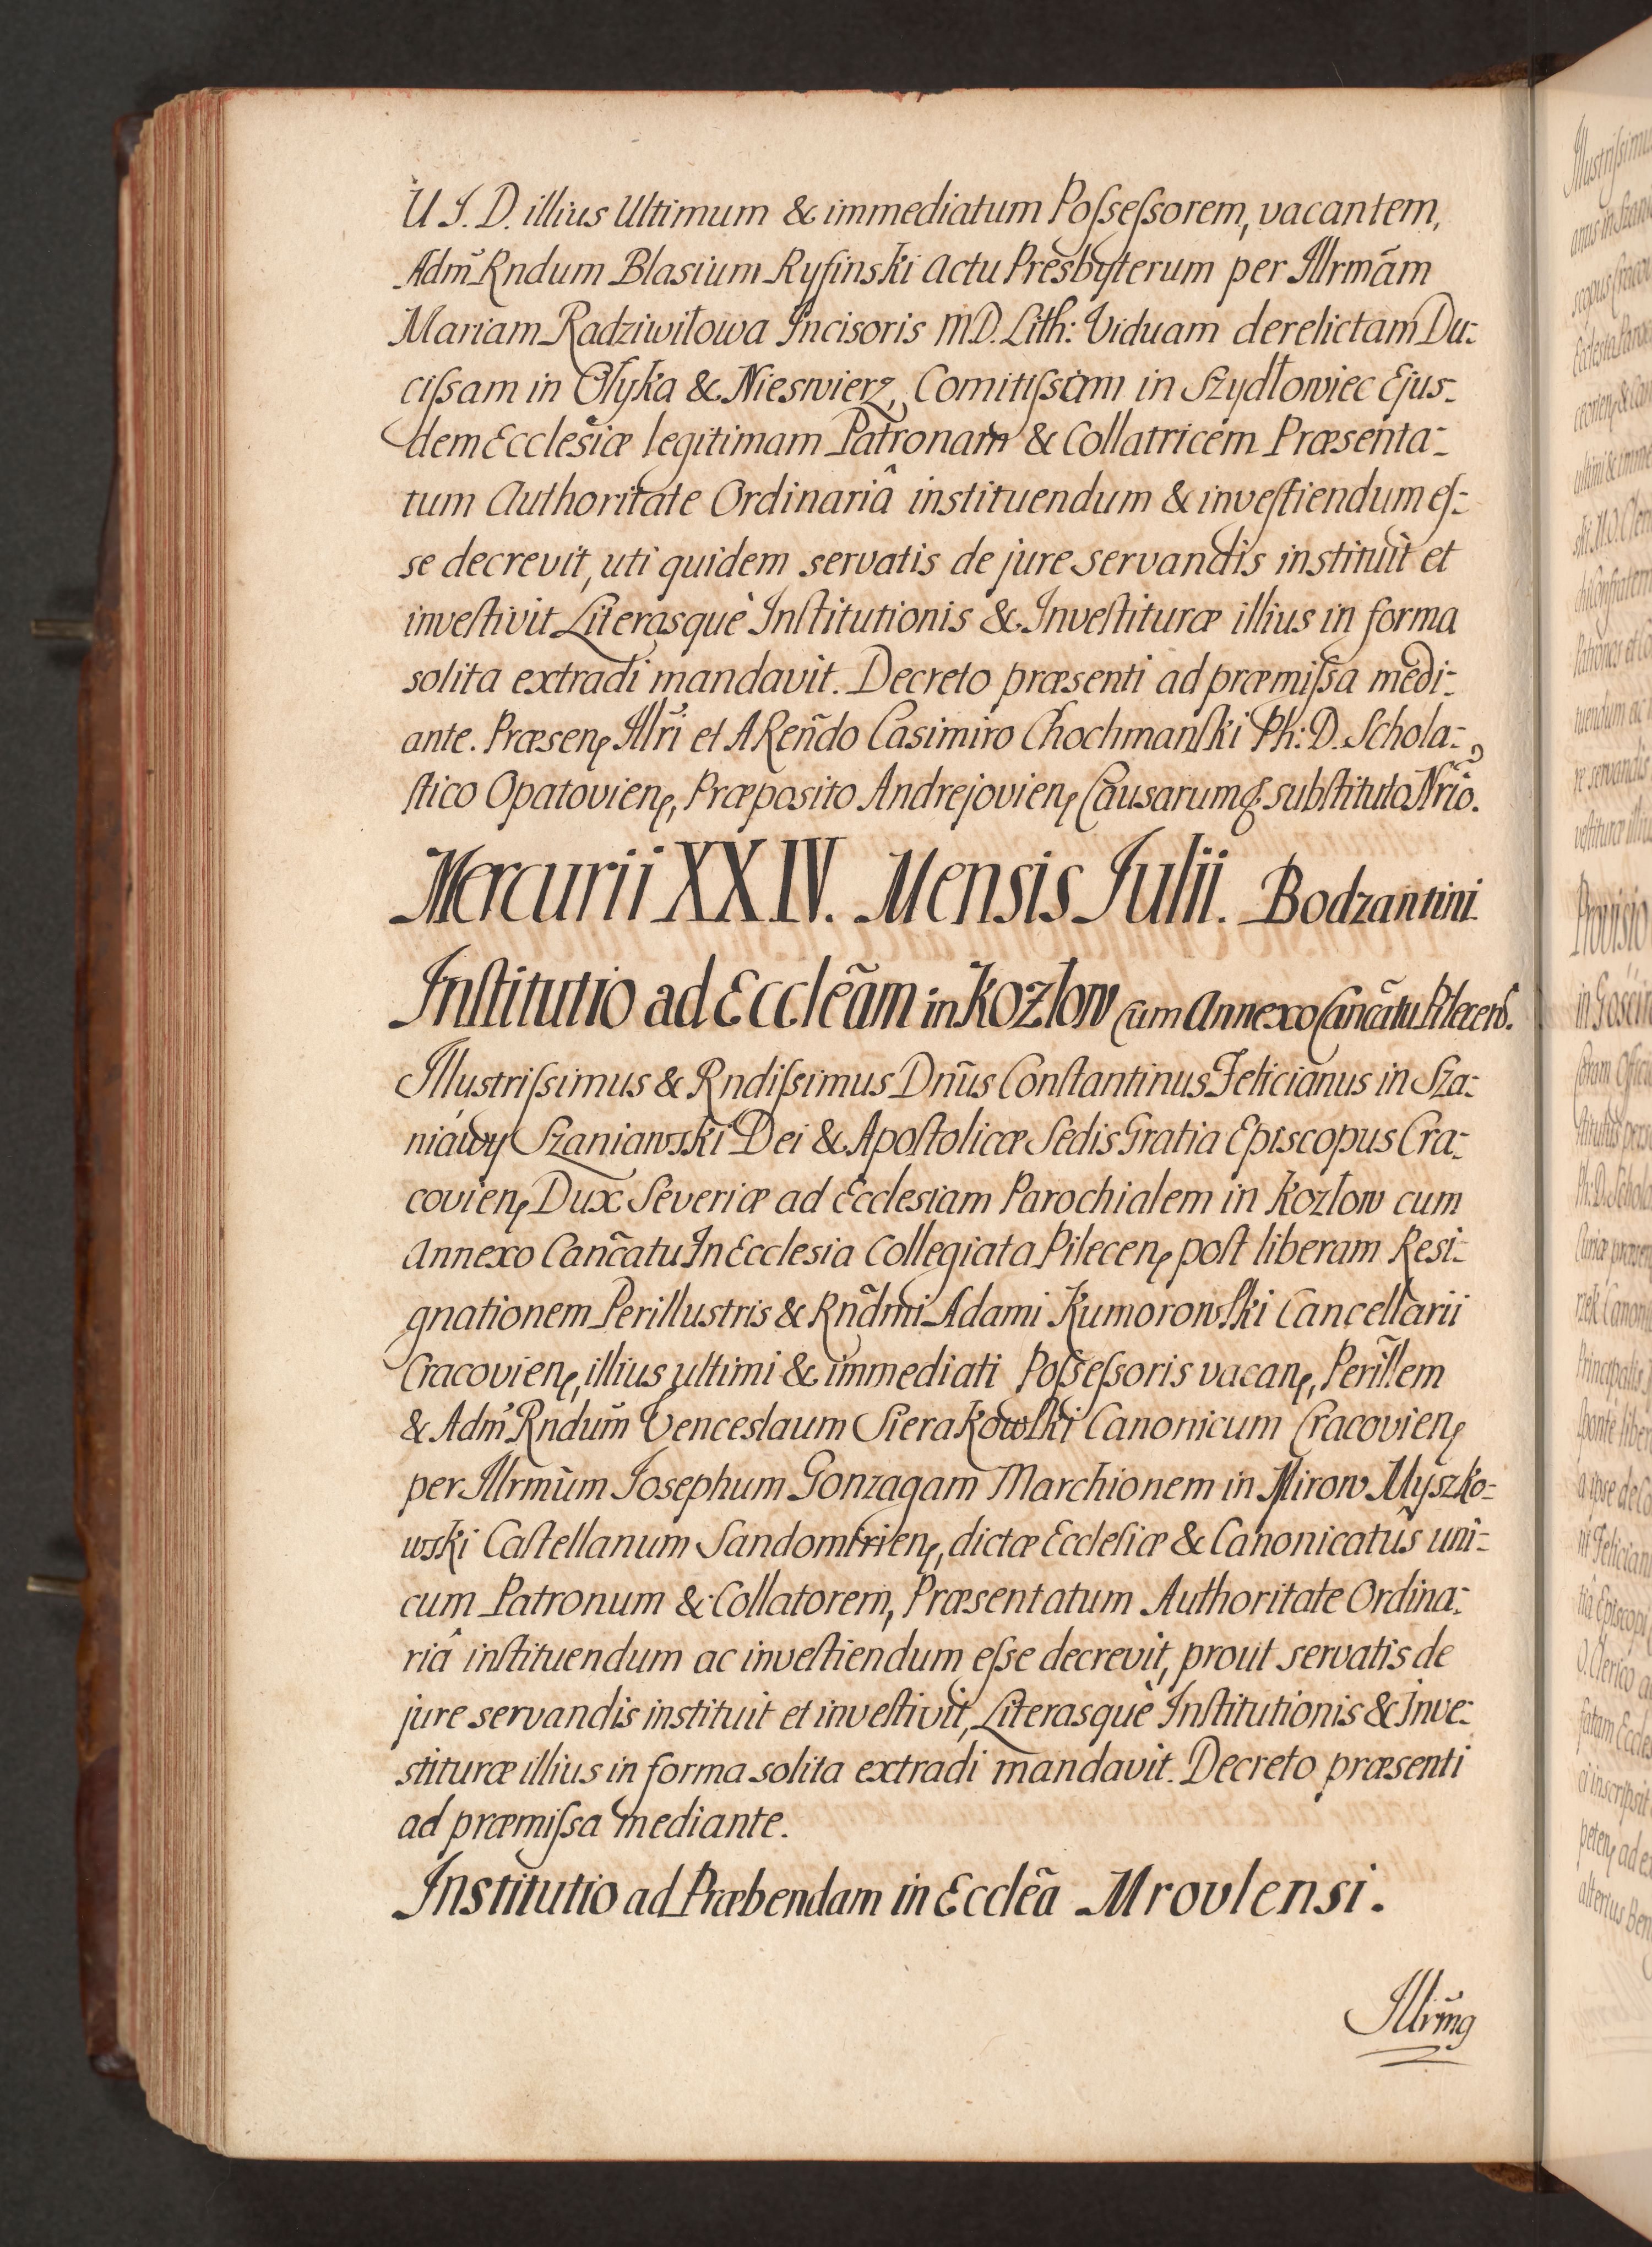 U J. D. illius Ultimum & immediatum Poſseſsorem, vacantem,
Adm̃ Rndum Blasium Ryſinski actu Presbyterum per Illrmãm
Mariam Radziwiłowa Incisoris M.D. Lith: Viduam derelictam Du-
ciſsam in Ołyka & Nieswierz, Comitiſsam in Szydłowiec Ejus-
dem Ecclesiæ legitimam Patronam & Collatricem Præsenta-
tum Authoritate Ordinariâ instituendum & inveſtiendum eſ-
se decrevit, uti quidem servatis de jure servandis instituit et
inveſtivit Literasquè Inſtitutionis & Inveſtituræ illius in forma
solita extradi mandavit. Decreto præsenti ad præmiſsa medi-
ante. Præsenꝭ Illr̃i et A Reñdo Casimiro Chochmanſki Ph: D. Schola-
ſtico Opatovienꝭ, Præposito Andrejovienꝭ Causarumqꝫ subſtituto Nrĩo.
Mercurii XXIV. Mensis Julii. Bodzantini
Inſtitutio ad Eccleãm in Kozłow cum Annexo Canc̃atu Pilecens.
Illustriſsimus & Rndiſsimus Dñus Conſtantinus Felicianus in Sza-
niáwy Szaniawski Dei & Apoſtolicæ Sedis Gratia Episcopus Cra-
covienꝭ Dux Severiæ ad Ecclesiam Parochialem in Kozłow cum
Annexo Canc̃atu In Ecclesia Collegiata Pilecenꝭ poſt liberam Resi-
gnationem Perillustris & Rñdmi Adami Kumorowſki Cancellarii
Cracovienꝭ, illius ultimi & immediati Poſseſsoris vacanꝭ, Perill̃em
& Adm̃ Rndum̃ Venceslaum Sierakowſki Canonicum Cracovienꝭ
per Illrmũm Josephum Gonzagam Marchionem in Mirow Myszko-
wski Caſtellanum Sandomirienꝭ, dictæ Eccleſiæ & Canonicatûs uni-
cum Patronum & Collatorem, Præsentatum Authoritate Ordina-
riâ inſtituendum ac inveſtiendum eſse decrevit, prout servatis de
jure servandis instituit et inveſtivit, Literasquè Inſtitutionis & Inve-
stituræ illius in forma solita extradi mandavit. Decreto præsenti
ad præmiſsa mediante.
Institutio ad Præbendam in Ecclẽa Mrovlensi.
Illrm̃9